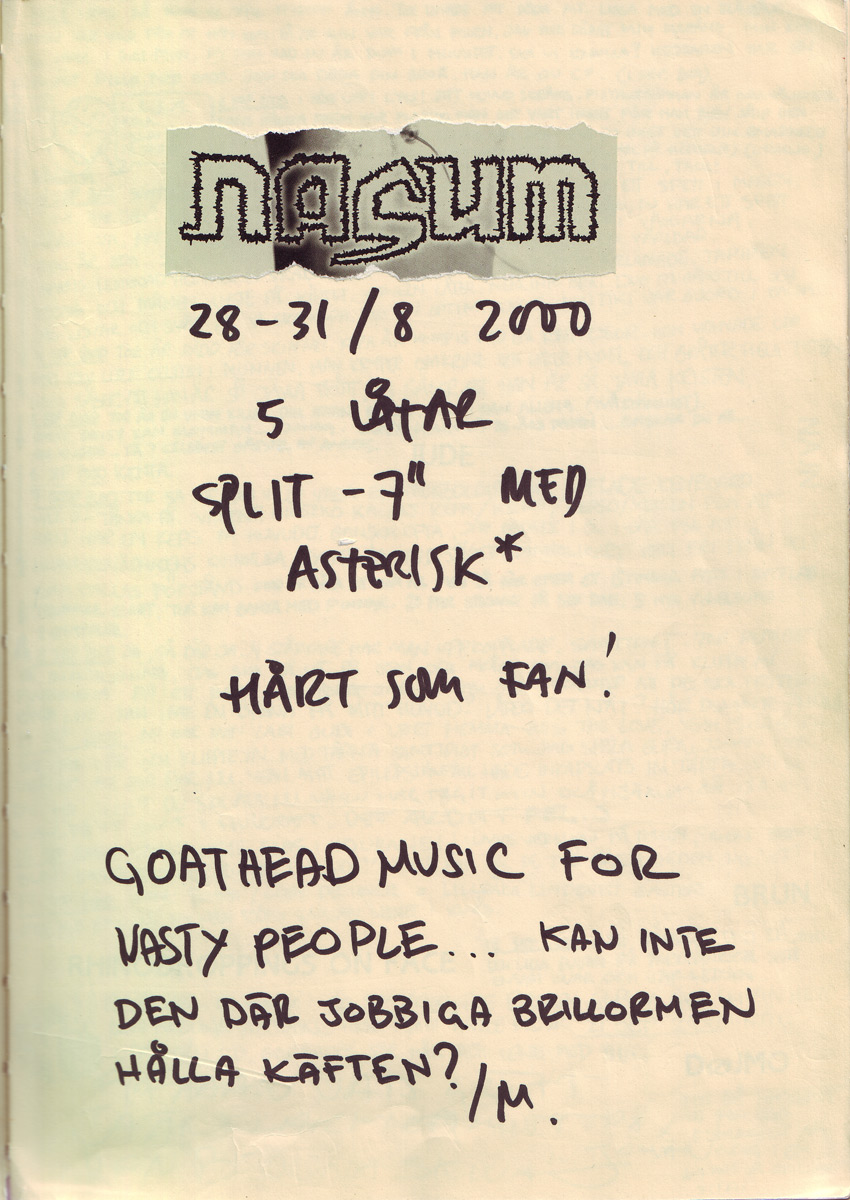 nasum
28-31/8 2000
5 LÅTAR
SPLIT-7" MED
ASTERISK*
HÅRT SOM FAN!
GOATHEAD MUSIC FOR
NASTY PEOPLE... KAN INTE
DEN DÄR JOBBIGA BRILLORMEN
HÅLLA KÄFTEN?
/M.